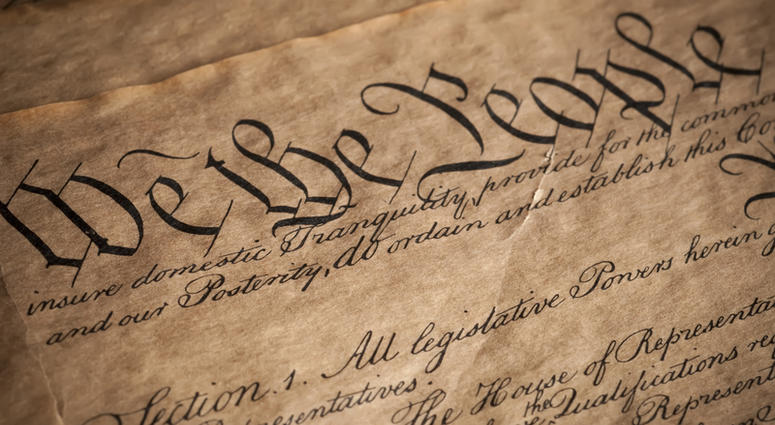 We the People
insure domestic Tranquility, provide for the common
and our Posterity, do ordain and establish this Co
Section. 1. All legislative Powers herein g
resentatives.
The House of Representa
the Qualifications re
Represent